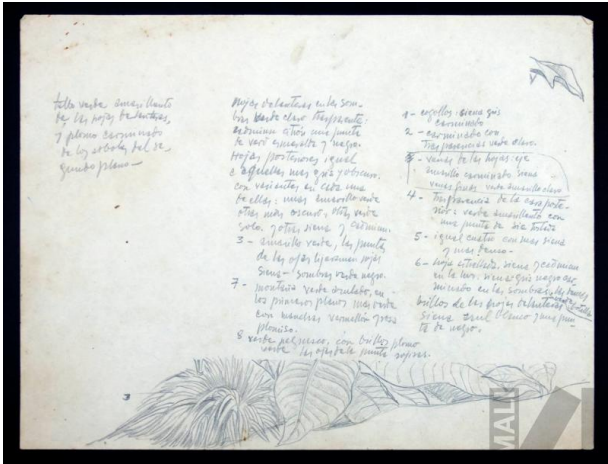 talle verde amarillento
de las hojas delanteras,
y plomo carminado
de los árboles del se-
gundo plano —
hojas delanteras en las som-
bras verde claro trasparente:
cadmium citrón una punta
de veronés esmeralda y negro.
hojas posteriores igual
a aquellas mas gris y obscuro;
con variantes, en cada una
de ellas: unas amarillo verde
otras mas oscuro, otras verde
solo, y otras siena y cadmium.
3 - amarillo verde, las puntas
de las ojas ligeramen rojas
siena - sombras verde negro.
7 - montaña verde azulado, en
los primeros planos mas verde
con manchas vermellón y rosa
plomizo.
8 verde negruzco, con brillos plomo
verde las ojas de la punta rojizas.
1 - cogollos: siena gris
carminado
2 - carminado con
trasparencias verde claro.
3 - venas de las hojas: eje
amarillo carminado siena
venas finas verde amarillo claro
4 - trasparencia de la cara poste-
rior: verde amarillento con
una punta de sia tostada
5 - igual cuatro con mas siena
y mas denso -
6 - hoja estrellada, siena y cadmium
en la luz; siena gris negro car-
minado en las sombras,
brillos de las hojas delanteras
siena azul blanco y una pun-
ta de negro.
3
MALI